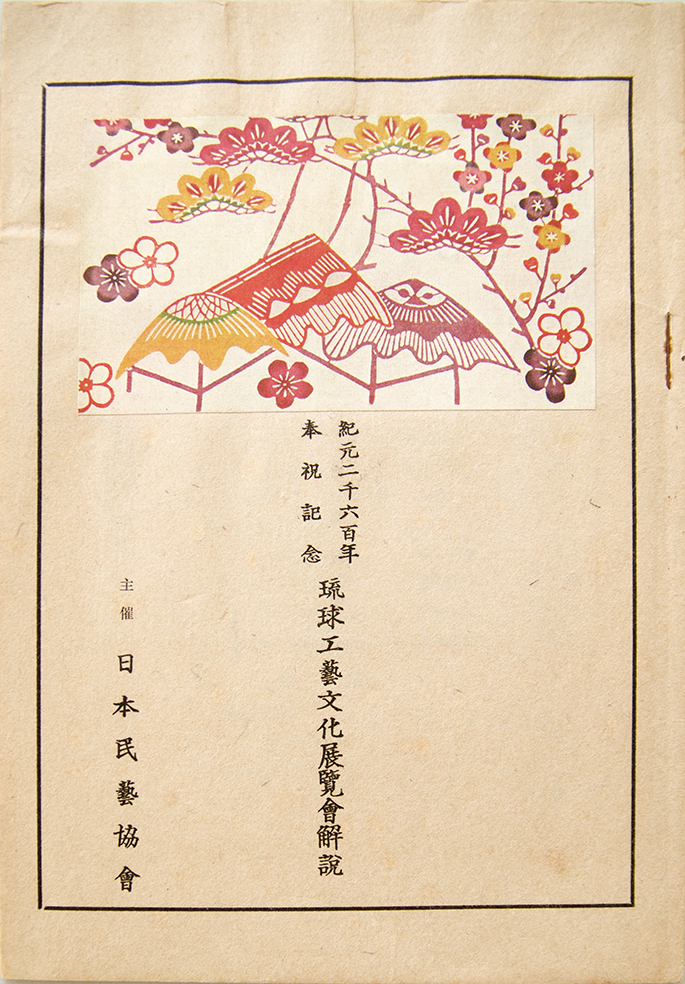 紀元二千六百年
奉祝記念
琉球工藝文化展覽會解說
主催
日本民藝協會